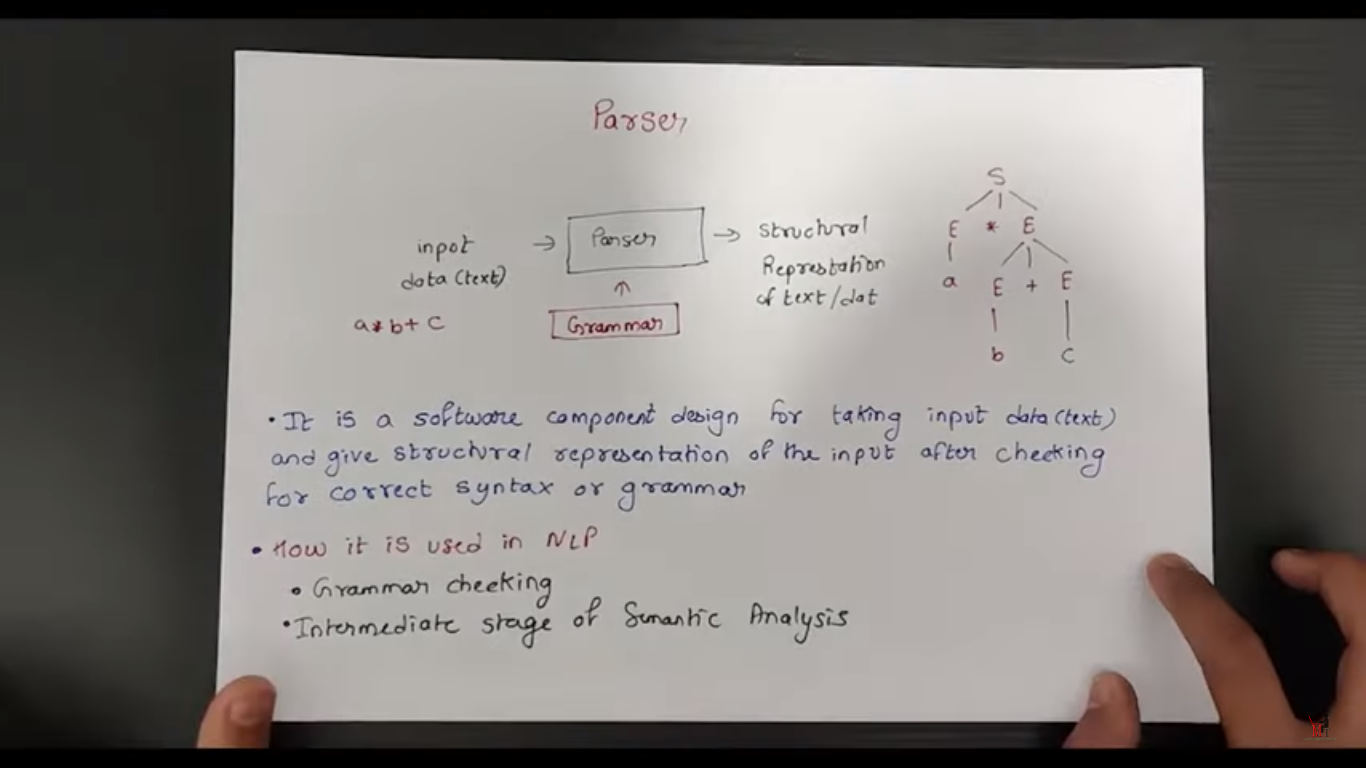 Parser
input
data (text)
a * b + c
→ Parser →
↑
Grammar
structural
Represtation
of text/dat
S
E * E
a E + E
b c
• It is a software component design for taking input data (text)
and give structural representation of the input after cheeking
for correct syntax or grammar
• How it is used in NLP
• Grammar cheeking
• Intermediate stage of Semantic Analysis